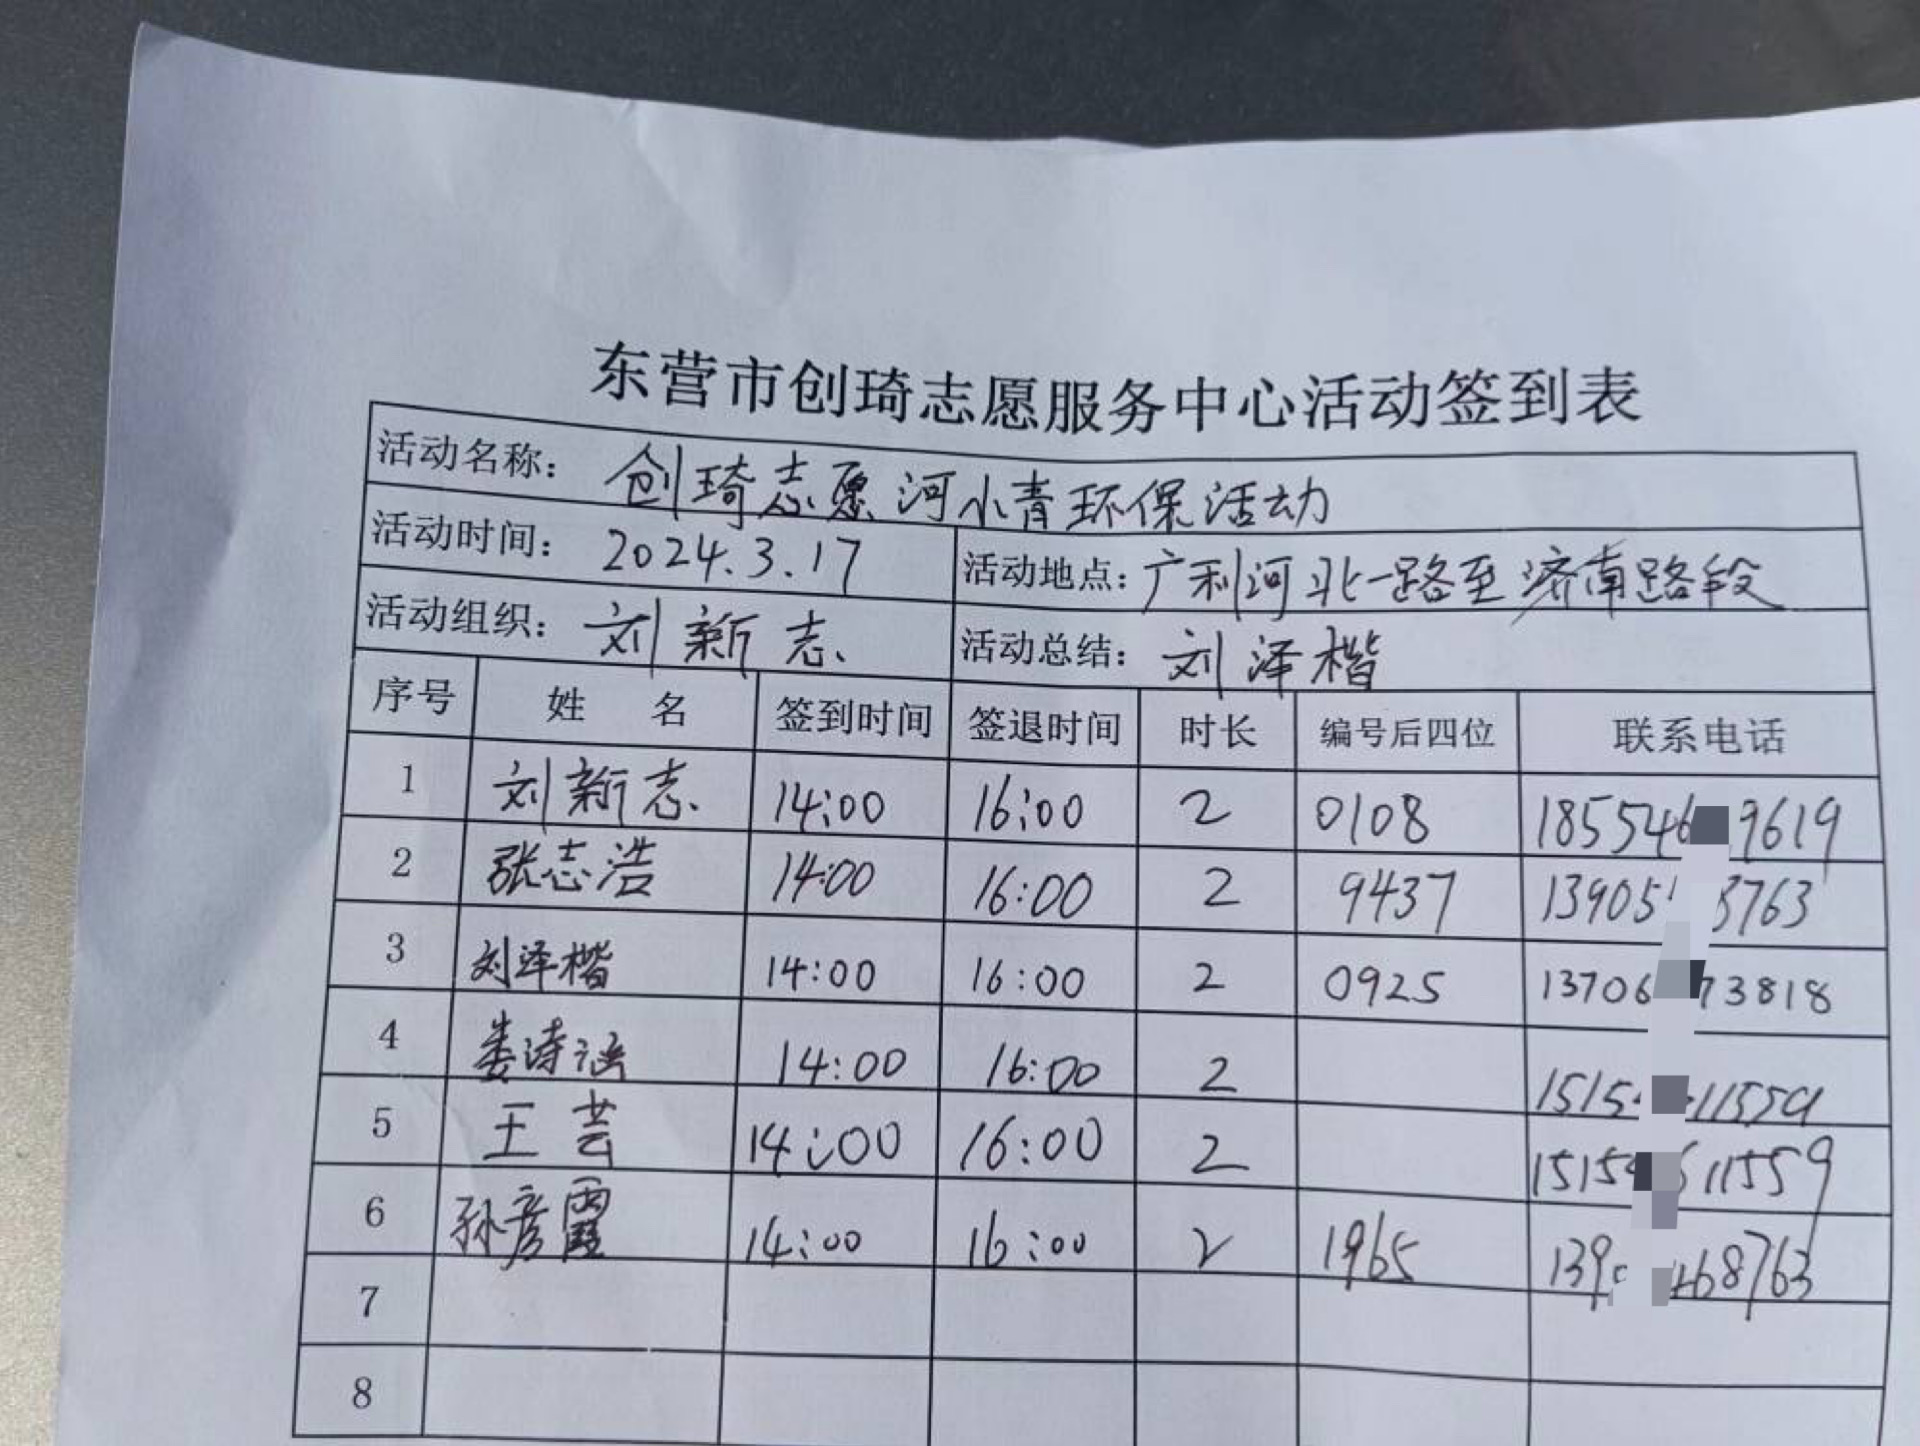 东营市创琦志愿服务中心活动签到表
活动名称： 创琦志愿河小青环保活动
活动时间： 2024.3.17 活动地点：广利河北一路至济南路段
活动组织： 刘新志 活动总结： 刘泽楷
序号 姓 名 签到时间 签退时间 时长 编号后四位 联系电话
1 刘新志 14:00 16:00 2 0108 185546 9619
2 张志浩 14:00 16:00 2 9437 13905 3763
3 刘泽楷 14:00 16:00 2 0925 13706 73818
4 娄诗涵 14:00 16:00 2 1515 11559
5 王芸 14:00 16:00 2 1515 11559
6 孙彦霞 14:00 16:00 2 1965 139 468763
7
8